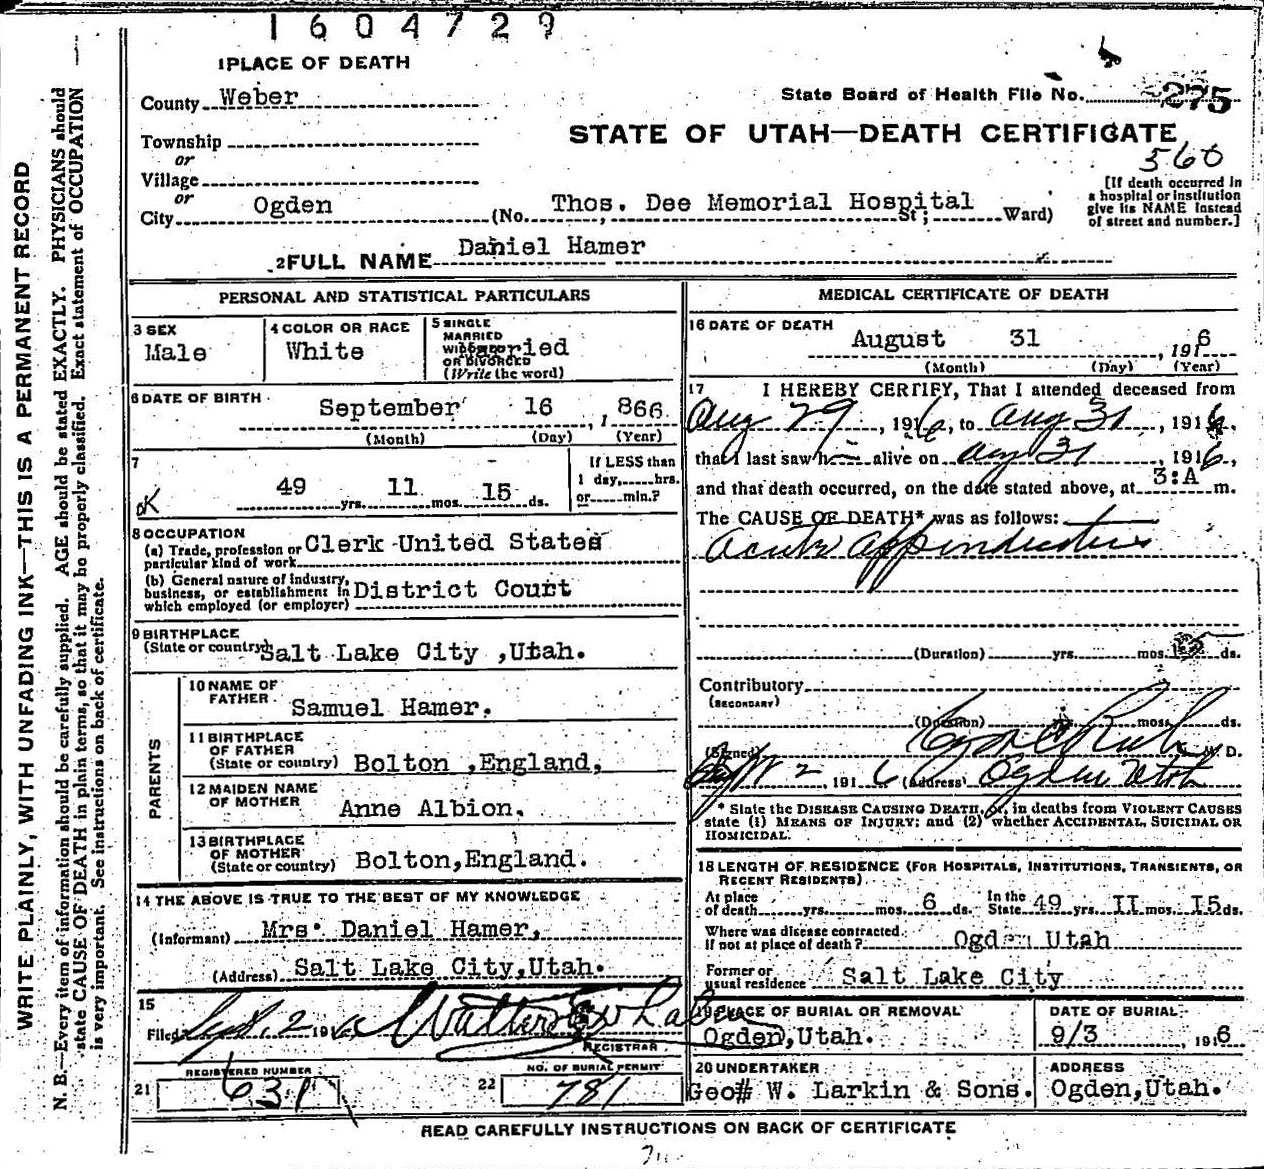 1604729
1 PLACE OF DEATH
County Weber
State Board of Health File No. 275
STATE OF UTAH—DEATH CERTIFICATE
560
Township
or
Village
or
City Ogden (No. Thos. Dee Memorial Hospital St; Ward)
[If death occurred in
a hospital or institution
give its NAME instead
of street and number.]
2 FULL NAME Daniel Hamer
PERSONAL AND STATISTICAL PARTICULARS
3 SEX
Male
4 COLOR OR RACE
White
5 SINGLE
MARRIED
WIDOWED
OR DIVORCED
(Write the word)
Married
6 DATE OF BIRTH
September 16, 1866
(Month) (Day) (Year)
7
OK
49 yrs. 11 mos. 15 ds.
If LESS than
1 day, hrs.
or min.?
8 OCCUPATION
(a) Trade, profession or
particular kind of work Clerk United States
(b) General nature of industry,
business, or establishment in
which employed (or employer) District Court
9 BIRTHPLACE
(State or country) Salt Lake City ,Utah.
PARENTS
10 NAME OF
FATHER Samuel Hamer.
11 BIRTHPLACE
OF FATHER
(State or country) Bolton ,England,
12 MAIDEN NAME
OF MOTHER Anne Albion.
13 BIRTHPLACE
OF MOTHER
(State or country) Bolton,England.
14 THE ABOVE IS TRUE TO THE BEST OF MY KNOWLEDGE
(Informant) Mrs. Daniel Hamer,
(Address) Salt Lake City,Utah.
15
Filed Sept. 2 1916 Walter
REGISTRAR
21 REGISTERED NUMBER
631
22 NO. OF BURIAL PERMIT
781
MEDICAL CERTIFICATE OF DEATH
16 DATE OF DEATH
August 31, 1916
(Month) (Day) (Year)
17 I HEREBY CERTIFY, That I attended deceased from
Aug 29, 1916, to Aug 31, 1916,
that I last saw h alive on Aug 31, 1916,
and that death occurred, on the date stated above, at 3:A m.
The CAUSE OF DEATH* was as follows:
Acute appendicitis
(Duration) yrs. mos. ds.
Contributory
(SECONDARY)
(Duration) yrs. mos. ds.
(Signed) Rich M. D.
Sept 2, 1916 (Address) Ogden Utah
* State the DISEASE CAUSING DEATH, or, in deaths from VIOLENT CAUSES
state (1) MEANS OF INJURY; and (2) whether ACCIDENTAL, SUICIDAL OR
HOMICIDAL.
18 LENGTH OF RESIDENCE (FOR HOSPITALS, INSTITUTIONS, TRANSIENTS, OR
RECENT RESIDENTS)
At place
of death yrs. mos. 6 ds. In the
State 49 yrs. II mos. I5 ds.
Where was disease contracted
if not at place of death? Ogden Utah
Former or
usual residence Salt Lake City
19 PLACE OF BURIAL OR REMOVAL
Ogden,Utah.
DATE OF BURIAL
9/3, 1916
20 UNDERTAKER
Geo# W. Larkin & Sons.
ADDRESS
Ogden,Utah.
READ CAREFULLY INSTRUCTIONS ON BACK OF CERTIFICATE
WRITE PLAINLY, WITH UNFADING INK—THIS IS A PERMANENT RECORD
N. B.—Every item of information should be carefully supplied. AGE should be stated EXACTLY. PHYSICIANS should
state CAUSE OF DEATH in plain terms, so that it may be properly classified. Exact statement of OCCUPATION
is very important. See instructions on back of certificate.